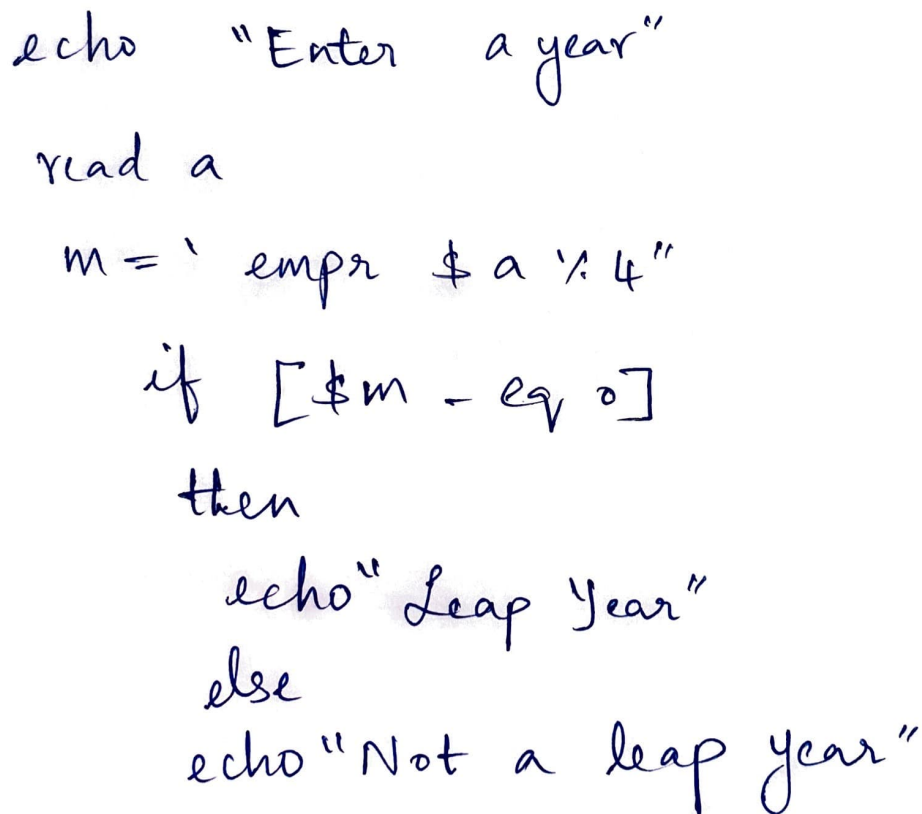 echo "Enter a year"
read a
m = ` empr $ a % 4"
if [$m - eq 0]
then
echo" Leap Year"
else
echo "Not a leap year"